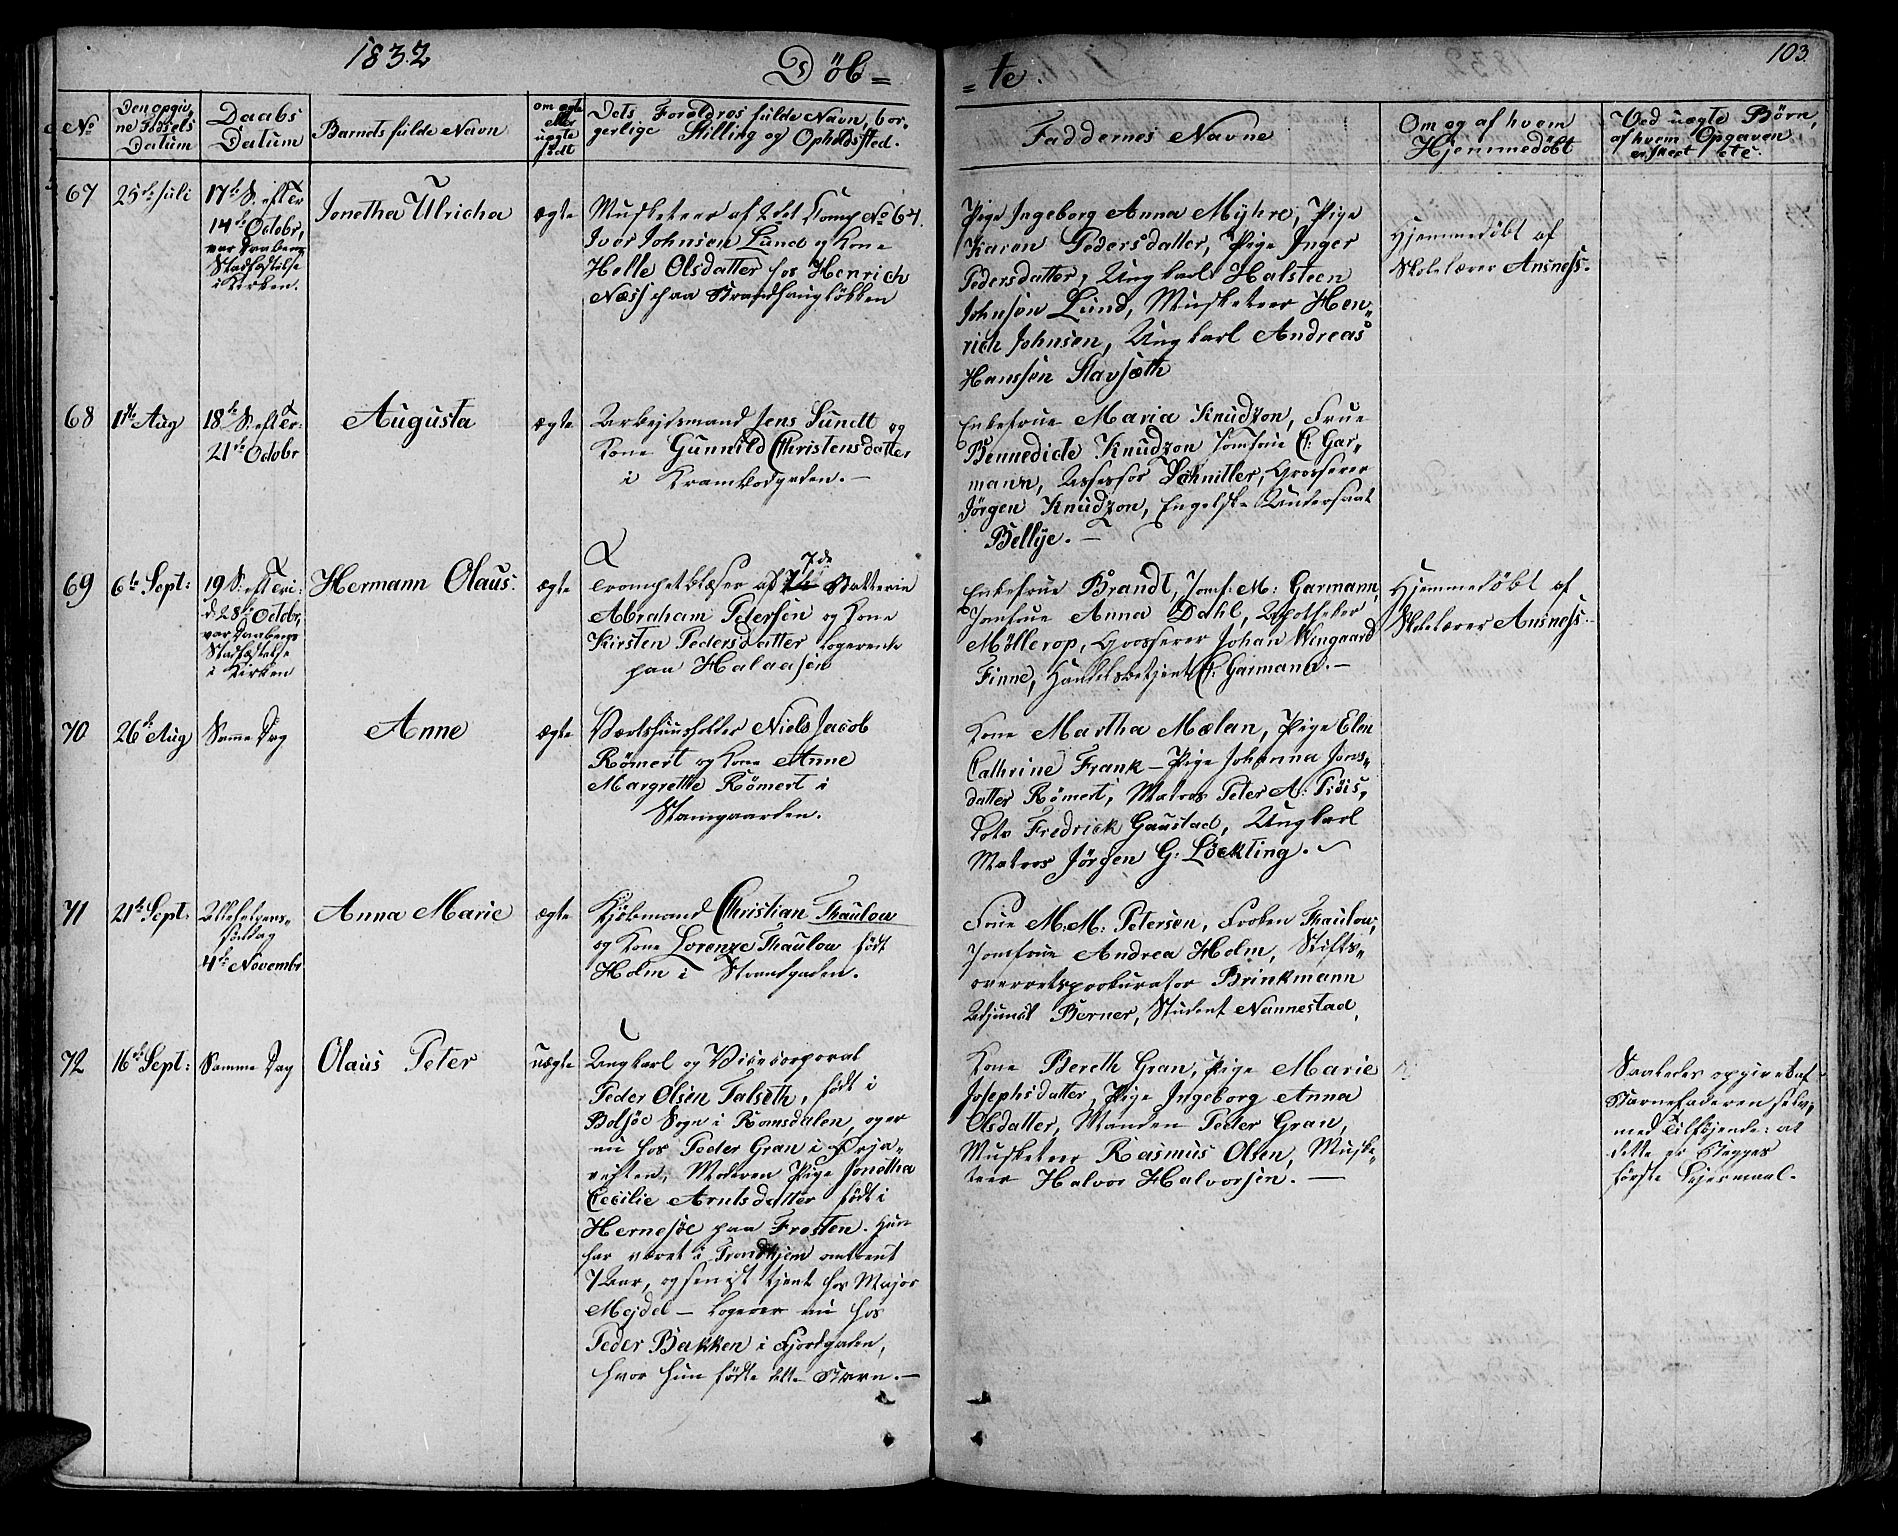 1832
Döb=
=te.
103.
No
Den opgiv,
ne Fødsels
Datum
Daabs
Datum
Barnets fulde Navn
om ægte
eller
uægte
født
Dets Forældres fulde Navn, bor-
gerlige Stilling og Opholdssted.
Faddernes Navne
Om og af hvem
Hjemmedöbt
Ved uægte Börn,
af hvem Opgaven
er skeet etc.
67
25de Juli
17de S: eft Tr
14de Octobr,
var Daabens
Stadfæstelse
i Kirken.
Jonetha Ulricha
ægte
Musketeer af 2det Comp No 64.
Iver Johnsen Lund og Kone
Helle Olsdatter hos Henrich
Næss paa Brandhaugløkken
Pige Ingeborg Anna Myhre, Pige
Karen Pedersdatter, Pige Inger
Pedersdatter, Ungkarl Halsteen
Johnsen Lund, Musketeer Hen,,
rich Johnsen, Ungkarl Andreas
Hanssen Stavsæth
Hjemmedöbt af
Skolelærer Ansness.
68
1ste Aug
18de S: eft Tr:
21de Octobr
Augusta
ægte
Arbejdsmand Jens Sundt og
Kone Gunnild Christensdatter
i Krambodgaden. —
Enkefrue Maria Knudzon, Frue
Bennedicte Knudzon Jomfrue C: Gar-
mann, Assessor Schnitler, Grosserer
Jörgen Knudzon, Engelsk Undersaat
Bellye. —
69
6te Sept:
19 S: eft Tri:
d. 28de Octobr,
var Daabens
Stadfæstelse
i Kirken
Hermann Olaus:
ægte
Trompetblæser af 7de Batterie
Abraham Petersen og Kone
Kirsten Pedersdatter logerende
paa Halaasen
Enkefrue Brandt, Jomf: M: Garmann,
Jomfrue Anna Dahl, Apotheker
Möllerop, Grosserer Johan Wingaard
Finne, Handelsbetjent C: Garmann. —
Hjemmedöbt af
Skolelærer Ansness.
70
26de Aug
Samme Dag
Anne
ægte
Værtshuusholder Niels Jacob
Römert og Kone Anne
Margrethe Römert i
Stamgaarden.
Kone Martha Mælan, Pige Elen
Cathrine Frank — Pige Johanna Jons-
datter Römert, Matros Peter A: Pöis,
Lots Fredrick Gaustad, Ungkarl
Matros Jörgen G. Löckting.
71
21de Sept:
Allehelgens-
søndag
4de Novembr
Anna Marie
ægte
Kjøbmand Christian Thaulow
og Kone Lorenze Thaulow født
Holm i Strandgaden.
Frue M: M: Petersen, Frøken Thaulow,
Jomfrue Andrea Holm, Stifts-
overretsprokurator Brinkmann
Adjunct Berner, Student Nannestad,
72
16de Sept:
Samme Dag
Olaus Peter
uægte
Ungkarl og Vicecorporal
Peder Olsen Talseth, født i
Bolsöe Sogn i Romsdalen, og er
nu hos Peder Gran i
Moderen Pige Jonetha
Cecilie Arntsdatter født i
Hernesöe paa Frosten. Hun
har været i Trondhjem omtrent
7 Aar, og senist tjent hos Major
Mejdel — logerer nu hos
Peder Bakken i Fjordgaden,
hvor hun fødte dette Barn. —
Kone Bereth Gran, Pige Marie
Josephsdatter, Pige Ingeborg Anna
Olsdatter, Manden Peder Gran,
Musketeer Rasmus Olsen, Muske-
teer Halvor Halvorsen. —
Saaledes opgivet af
Barnefaderen selv,
med Tilføjende: at
dette er Begges
første Lejermaal.